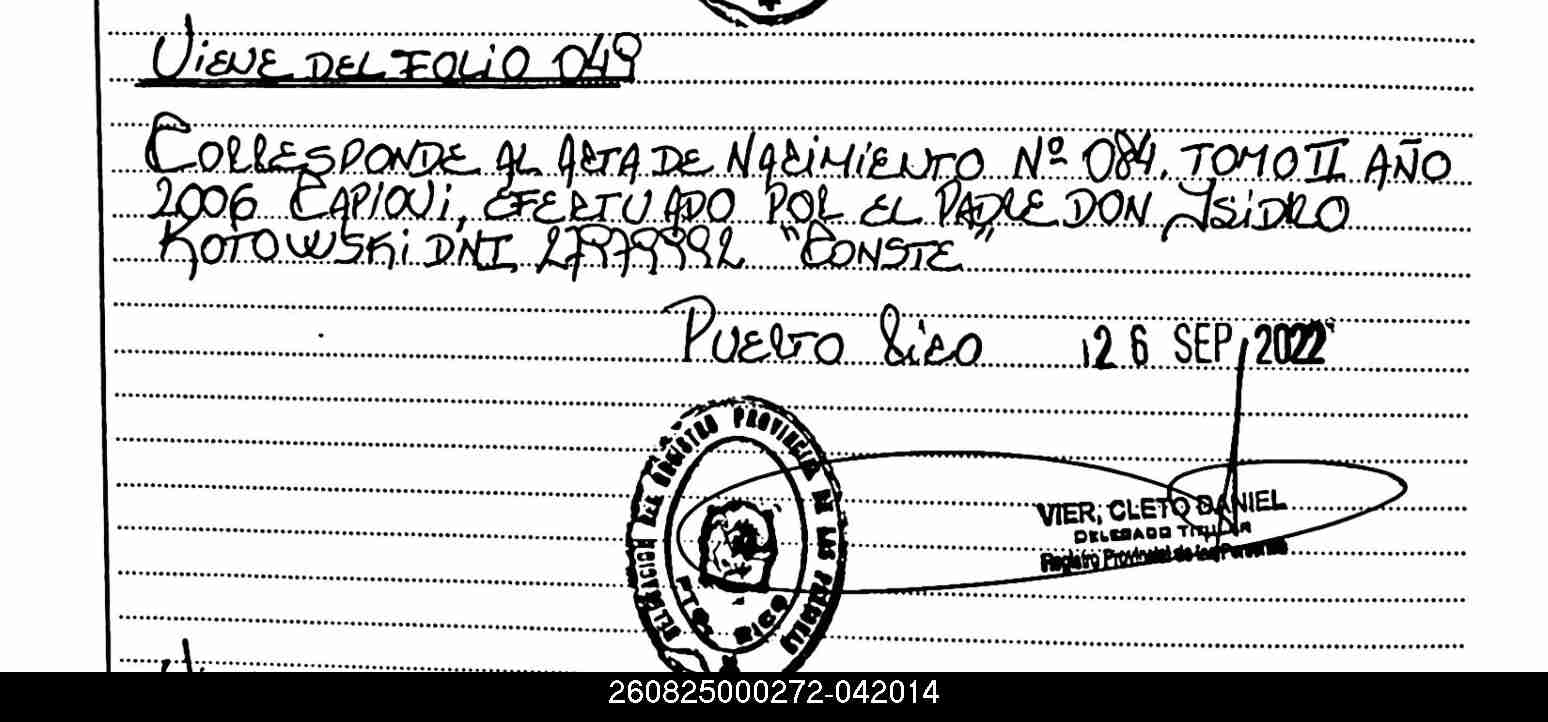 VIENE DEL FOLIO 049
CORRESPONDE AL ACTA DE NACIMIENTO Nº 084. TOMO II AÑO
2006 CAPIOVI, EFECTUADO POR EL PADRE DON YSIDRO
KOTOWSKI DNI 27979992 "CONSTE"
PUERTO RICO 26 SEP 2022
DELEGACION DEL REGISTRO PROVINCIAL DE LAS PERSONAS
PTO. RICO
VIER, CLETO DANIEL
DELEGADO TITULAR
Registro Provincial de las Personas
260825000272-042014